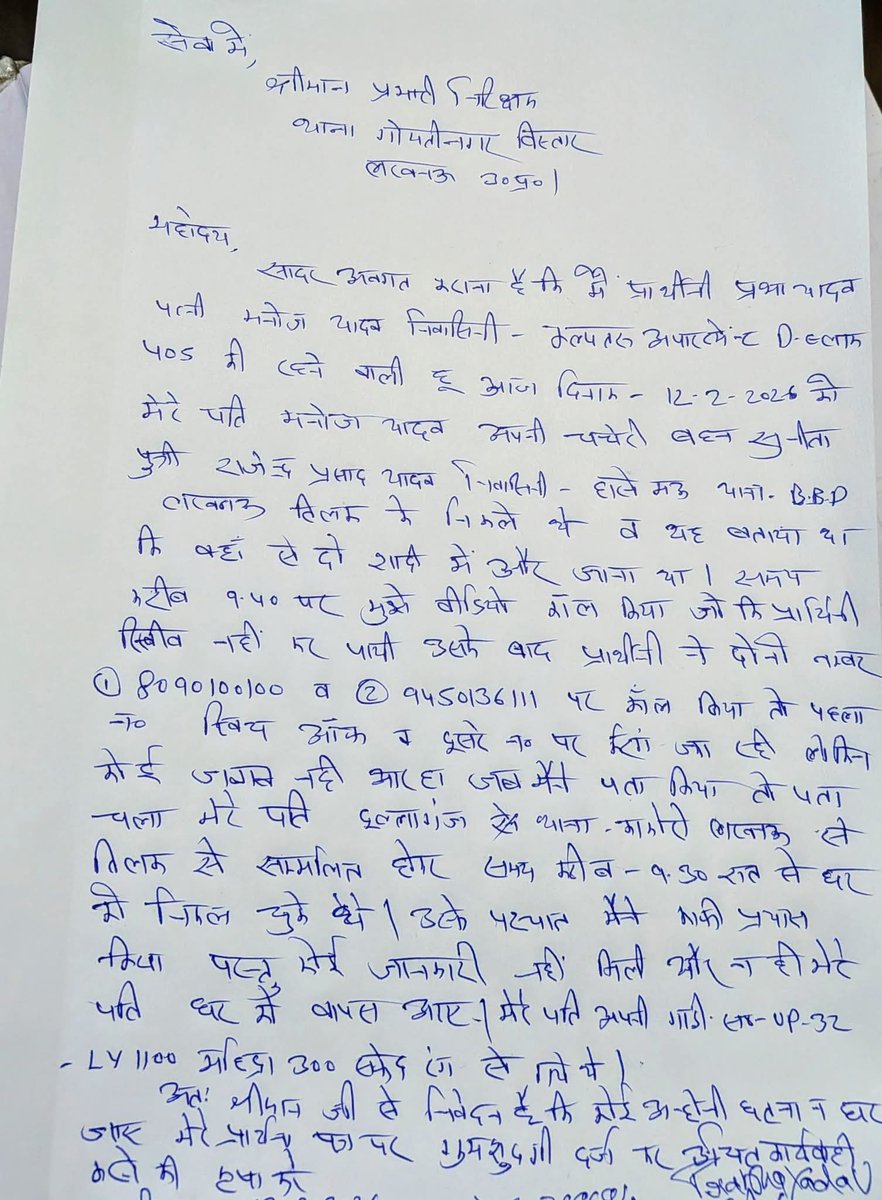 सेवा में,
श्रीमान प्रभारी निरीक्षक
थाना गोमतीनगर विस्तार
लखनऊ उ०प्र०।
महोदय,
सादर अवगत कराना है कि मैं प्रार्थीनी प्रभा यादव
पत्नी मनोज यादव निवासिनी - कल्पतरु अपार्टमेन्ट D-ब्लाक
405 की रहने वाली हू आज दिनांक - 12-2-2026 को
मेरे पति मनोज यादव अपनी चचेरी बहन सुनीता
पुत्री राजेन्द्र प्रसाद यादव निवासिनी - हासे मऊ थाना- B.B.D
लखनऊ तिलक के निकले थे व यह बताया था
कि वहाँ से दो शादी में और जाना था। समय
करीब 9.40 पर मुझे वीडियो कॉल किया जो कि प्रार्थिनी
रिसीव नहीं कर पायी उसके बाद प्रार्थीनी ने दोनो नम्बर
① 8090100100 व ② 9450136111 पर कॉल किया तो पहला
न० स्विच ऑफ व दूसरे न० पर रिंग जा रही लेकिन
कोई जवाब नही आ रहा जब मैने पता किया तो पता
चला मेरे पति थाना-काकोरी लखनऊ से
तिलक से सम्मलित होकर समय करीब - 9.30 रात से घर
को निकल चुके थे। उसके पश्चात मैने काफी प्रयास
किया परन्तु कोई जानकारी नहीं मिली और न ही मेरे
पति घर में वापस आए। मेरे पति अपनी गाडी सं०-UP-32
- LY 1100 महिंद्रा 300 सफेद रंग से गये थे।
अतः श्रीमान जी से निवेदन है कि कोई अनहोनी घटना न घट
जाए मेरे प्रार्थना पर गुमशुदगी दर्ज कर उचित कार्यवाही
करने की कृपा करें